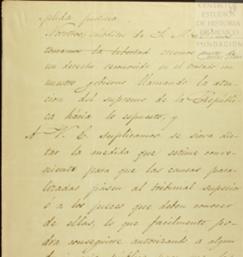 pleida justicia.
Nosotros, súbditos de S. M.
tomamos la libertad creemos
un derecho reconocido en el tratado en
nuestro gobierno llamando la aten-
cion del supremo de la Repúbli-
ca hácia lo expuesto, y
A V. E. suplicamos se sirva dic-
tar la medida que estime conve-
niente para que las causas para-
lizadas pasen al tribunal superior
ó a los jueces que deban conocer
de ellas, lo que facilmente po-
drá conseguirse autorizando a algun
CENTRO DE
ESTUDIOS
DE HISTORIA
DE MEXICO
FUNDACIÓN